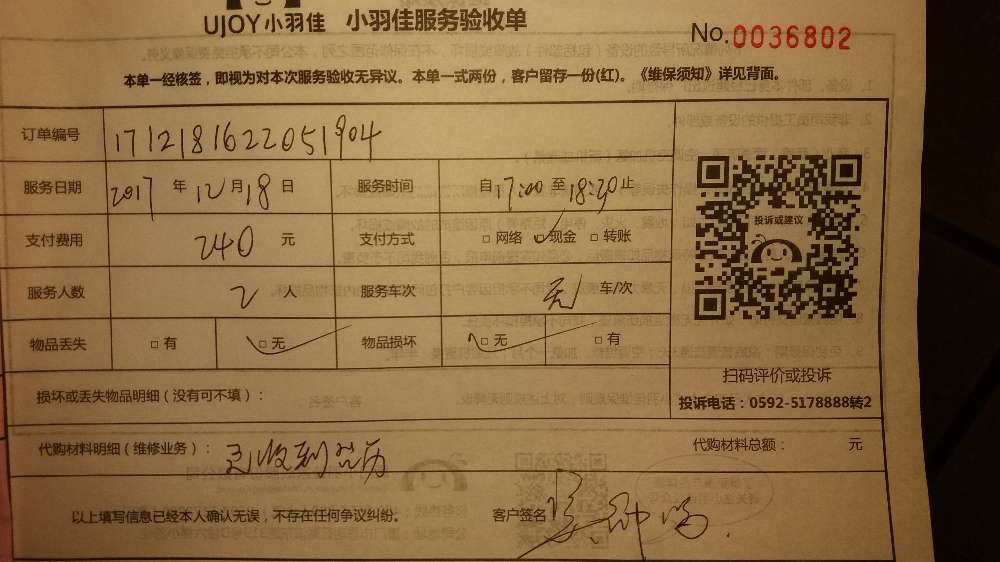 UJOY小羽佳 小羽佳服务验收单
No.0036802
本单一经核签，即视为对本次服务验收无异议。本单一式两份，客户留存一份(红)。《维保须知》详见背面。
订单编号 1712181622051904
服务日期 2017 年 12 月 18 日 服务时间 自 17:00 至 18:30 止
支付费用 240 元 支付方式 □ 网络 □ 现金 □ 转账
投诉或建议
服务人数 2 人 服务车次 无 车/次
物品丢失 □ 有 □ 无 物品损坏 □ 无 □ 有
扫码评价或投诉
损坏或丢失物品明细（没有可不填）：
投诉电话：0592-5178888转2
代购材料明细（维修业务）： 已收到
代购材料总额： 元
以上填写信息已经本人确认无误，不存在任何争议纠纷。 客户签名